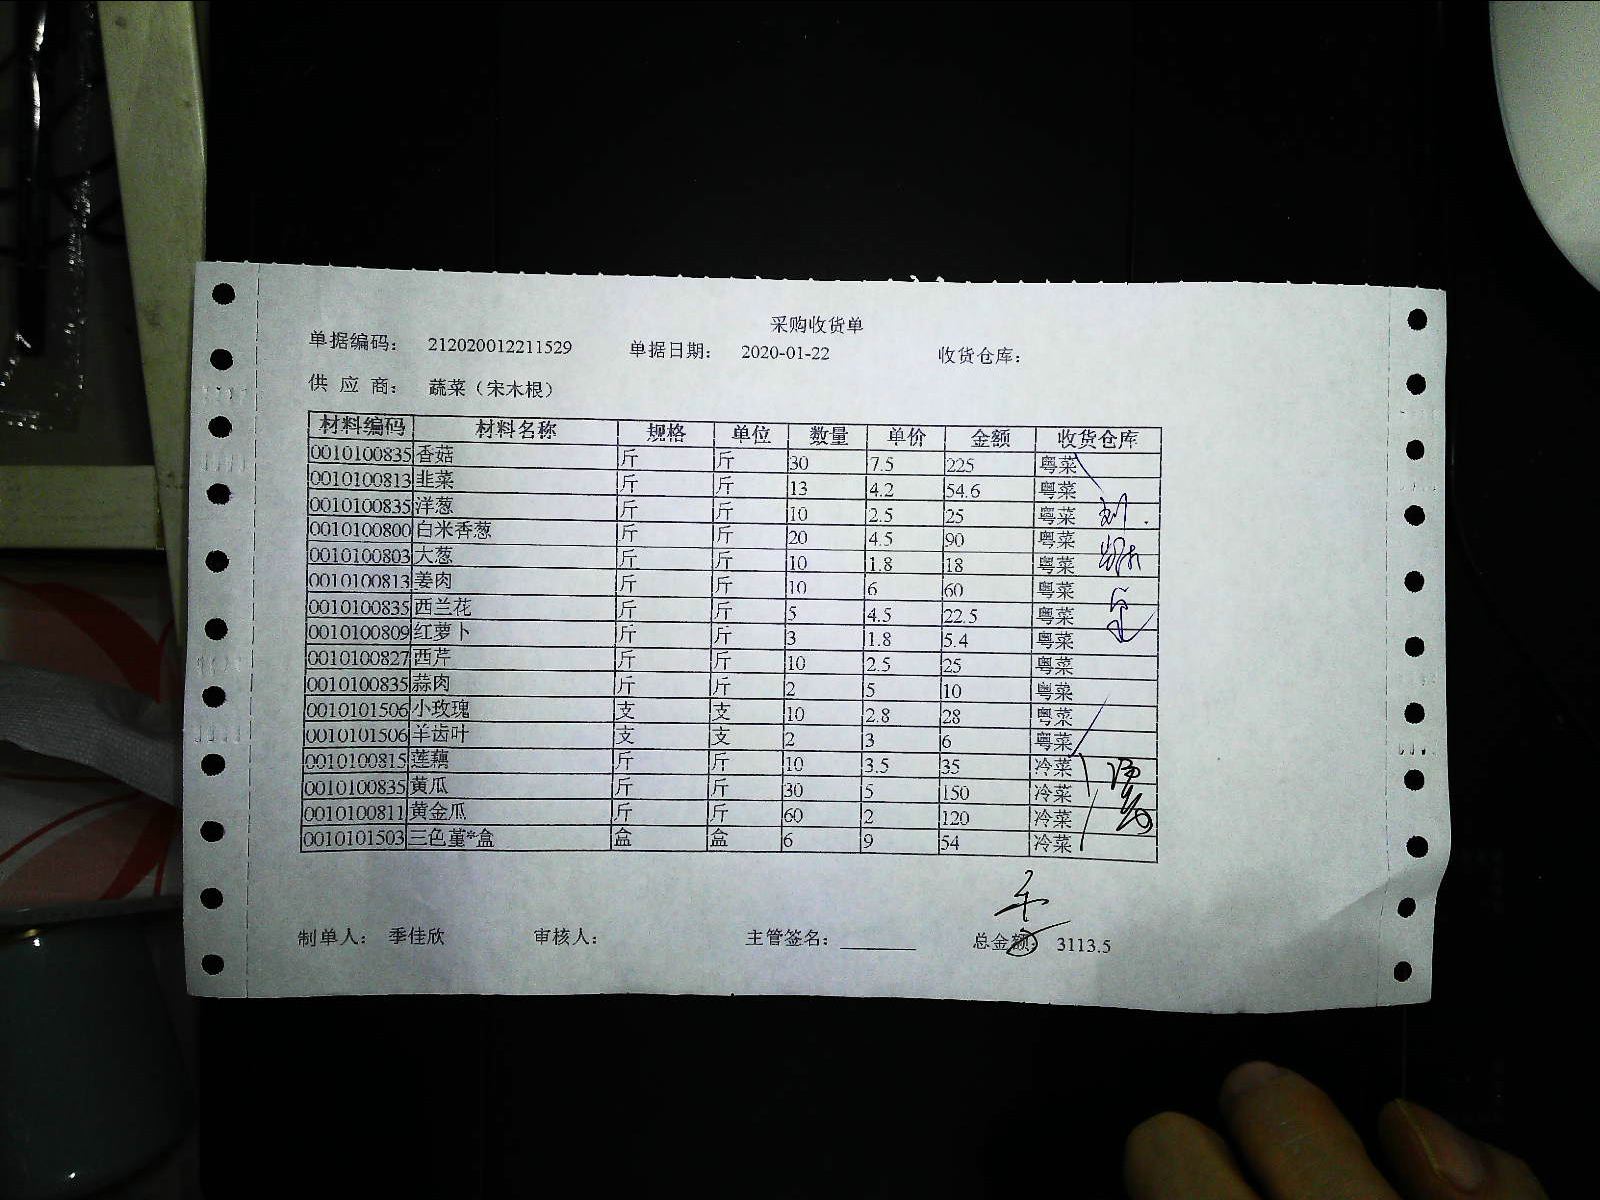 采购收货单
单据编码: 212020012211529 单据日期: 2020-01-22 收货仓库:
供 应 商: 蔬菜（宋木根）
材料编码 材料名称 规格 单位 数量 单价 金额 收货仓库
0010100835 香菇 斤 斤 30 7.5 225 粤菜
0010100813 韭菜 斤 斤 13 4.2 54.6 粤菜
0010100835 洋葱 斤 斤 10 2.5 25 粤菜
0010100800 白米香葱 斤 斤 20 4.5 90 粤菜
0010100803 大葱 斤 斤 10 1.8 18 粤菜
0010100813 姜肉 斤 斤 10 6 60 粤菜
0010100835 西兰花 斤 斤 5 4.5 22.5 粤菜
0010100809 红萝卜 斤 斤 3 1.8 5.4 粤菜
0010100827 西芹 斤 斤 10 2.5 25 粤菜
0010100835 蒜肉 斤 斤 2 5 10 粤菜
0010101506 小玫瑰 支 支 10 2.8 28 粤菜
0010101506 羊齿叶 支 支 2 3 6 粤菜
0010100815 莲藕 斤 斤 10 3.5 35 冷菜
0010100835 黄瓜 斤 斤 30 5 150 冷菜
0010100811 黄金瓜 斤 斤 60 2 120 冷菜
0010101503 三色堇*盒 盒 盒 6 9 54 冷菜
制单人: 季佳欣 审核人: 主管签名: 总金额: 3113.5